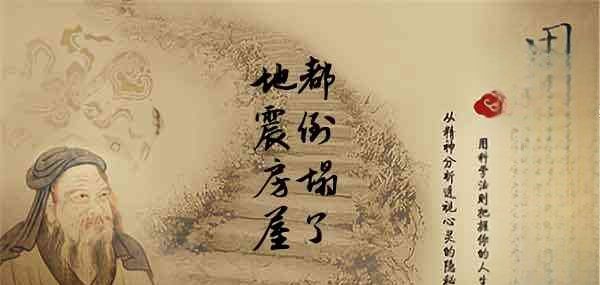 地震房屋
都倒塌了
从精神分析透视心灵的隐秘
用科学法则把握你的人生